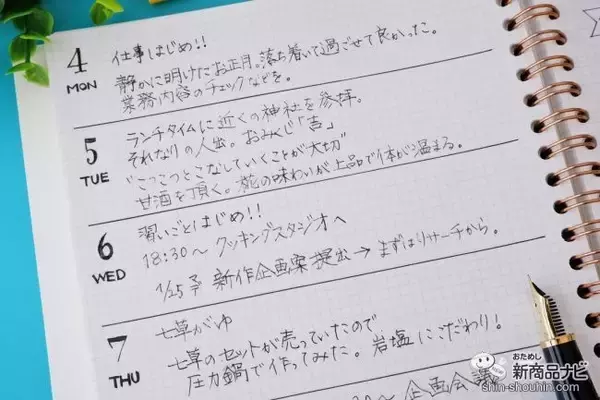 4
MON
仕事はじめ!!
静かに明けたお正月。落ち着いて過ごせて良かった。
業務内容のチェックなどを。
5
TUE
ランチタイムに近くの神社を参拝。
それなりの人出。おみくじ「吉」
"こつこつとこなしていくことが大切"
甘酒を頂く。糀の味わいが上品で体が温まる。
6
WED
習いごとはじめ!!
18:30～ クッキングスタジオへ
1/25〆 新作企画案提出→まずはリサーチから。
7
THU
七草がゆ
七草のセットが売っていたので
圧力鍋で作ってみた。岩塩にこだわり!
:30～ 企画会議
おためし
新商品ナビ
shin-shouhin.com